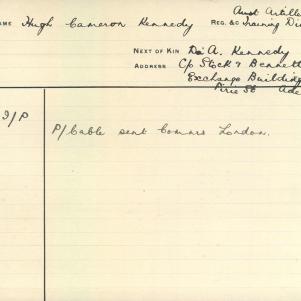 Aust Artille
AME Hugh Cameron Kennedy REG. &C Training Di
NEXT OF KIN Dr A. Kennedy
ADDRESS C/o Stock & Bennett
Exchange Building
Pirie St Ade
I/P P/Cable sent Comms London.